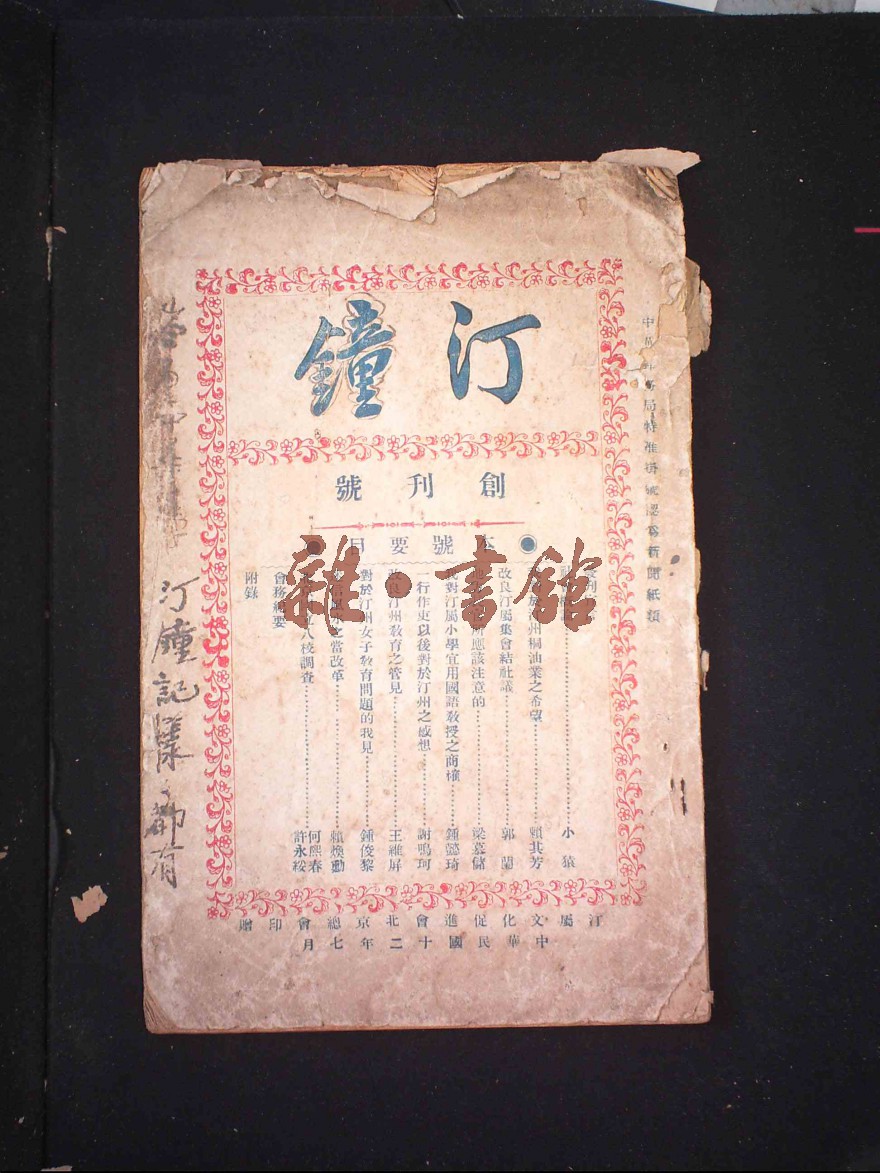 汀鐘
創刊號
本號要目
發刊
小猿
州桐油業之希望 賴其芳
改良汀屬集會結社議 郭蘭
所應該注意的 梁慕儲
對汀屬小學宜用國語教授之商榷 鍾懿琦
一行作吏以後對於汀州之感想 謝鳴珂
改良汀州教育之管見 王維屏
對於汀州女子教育問題的我見 鍾俊黎
之當改革 賴煥勳
立八校調查 何熙春 許永綏
會務紀要
附錄
汀屬文化促進會北京總會印贈
中華民國十二年七月
中 局特准掛號認為新聞紙類
汀鐘記 都有
雜·書館